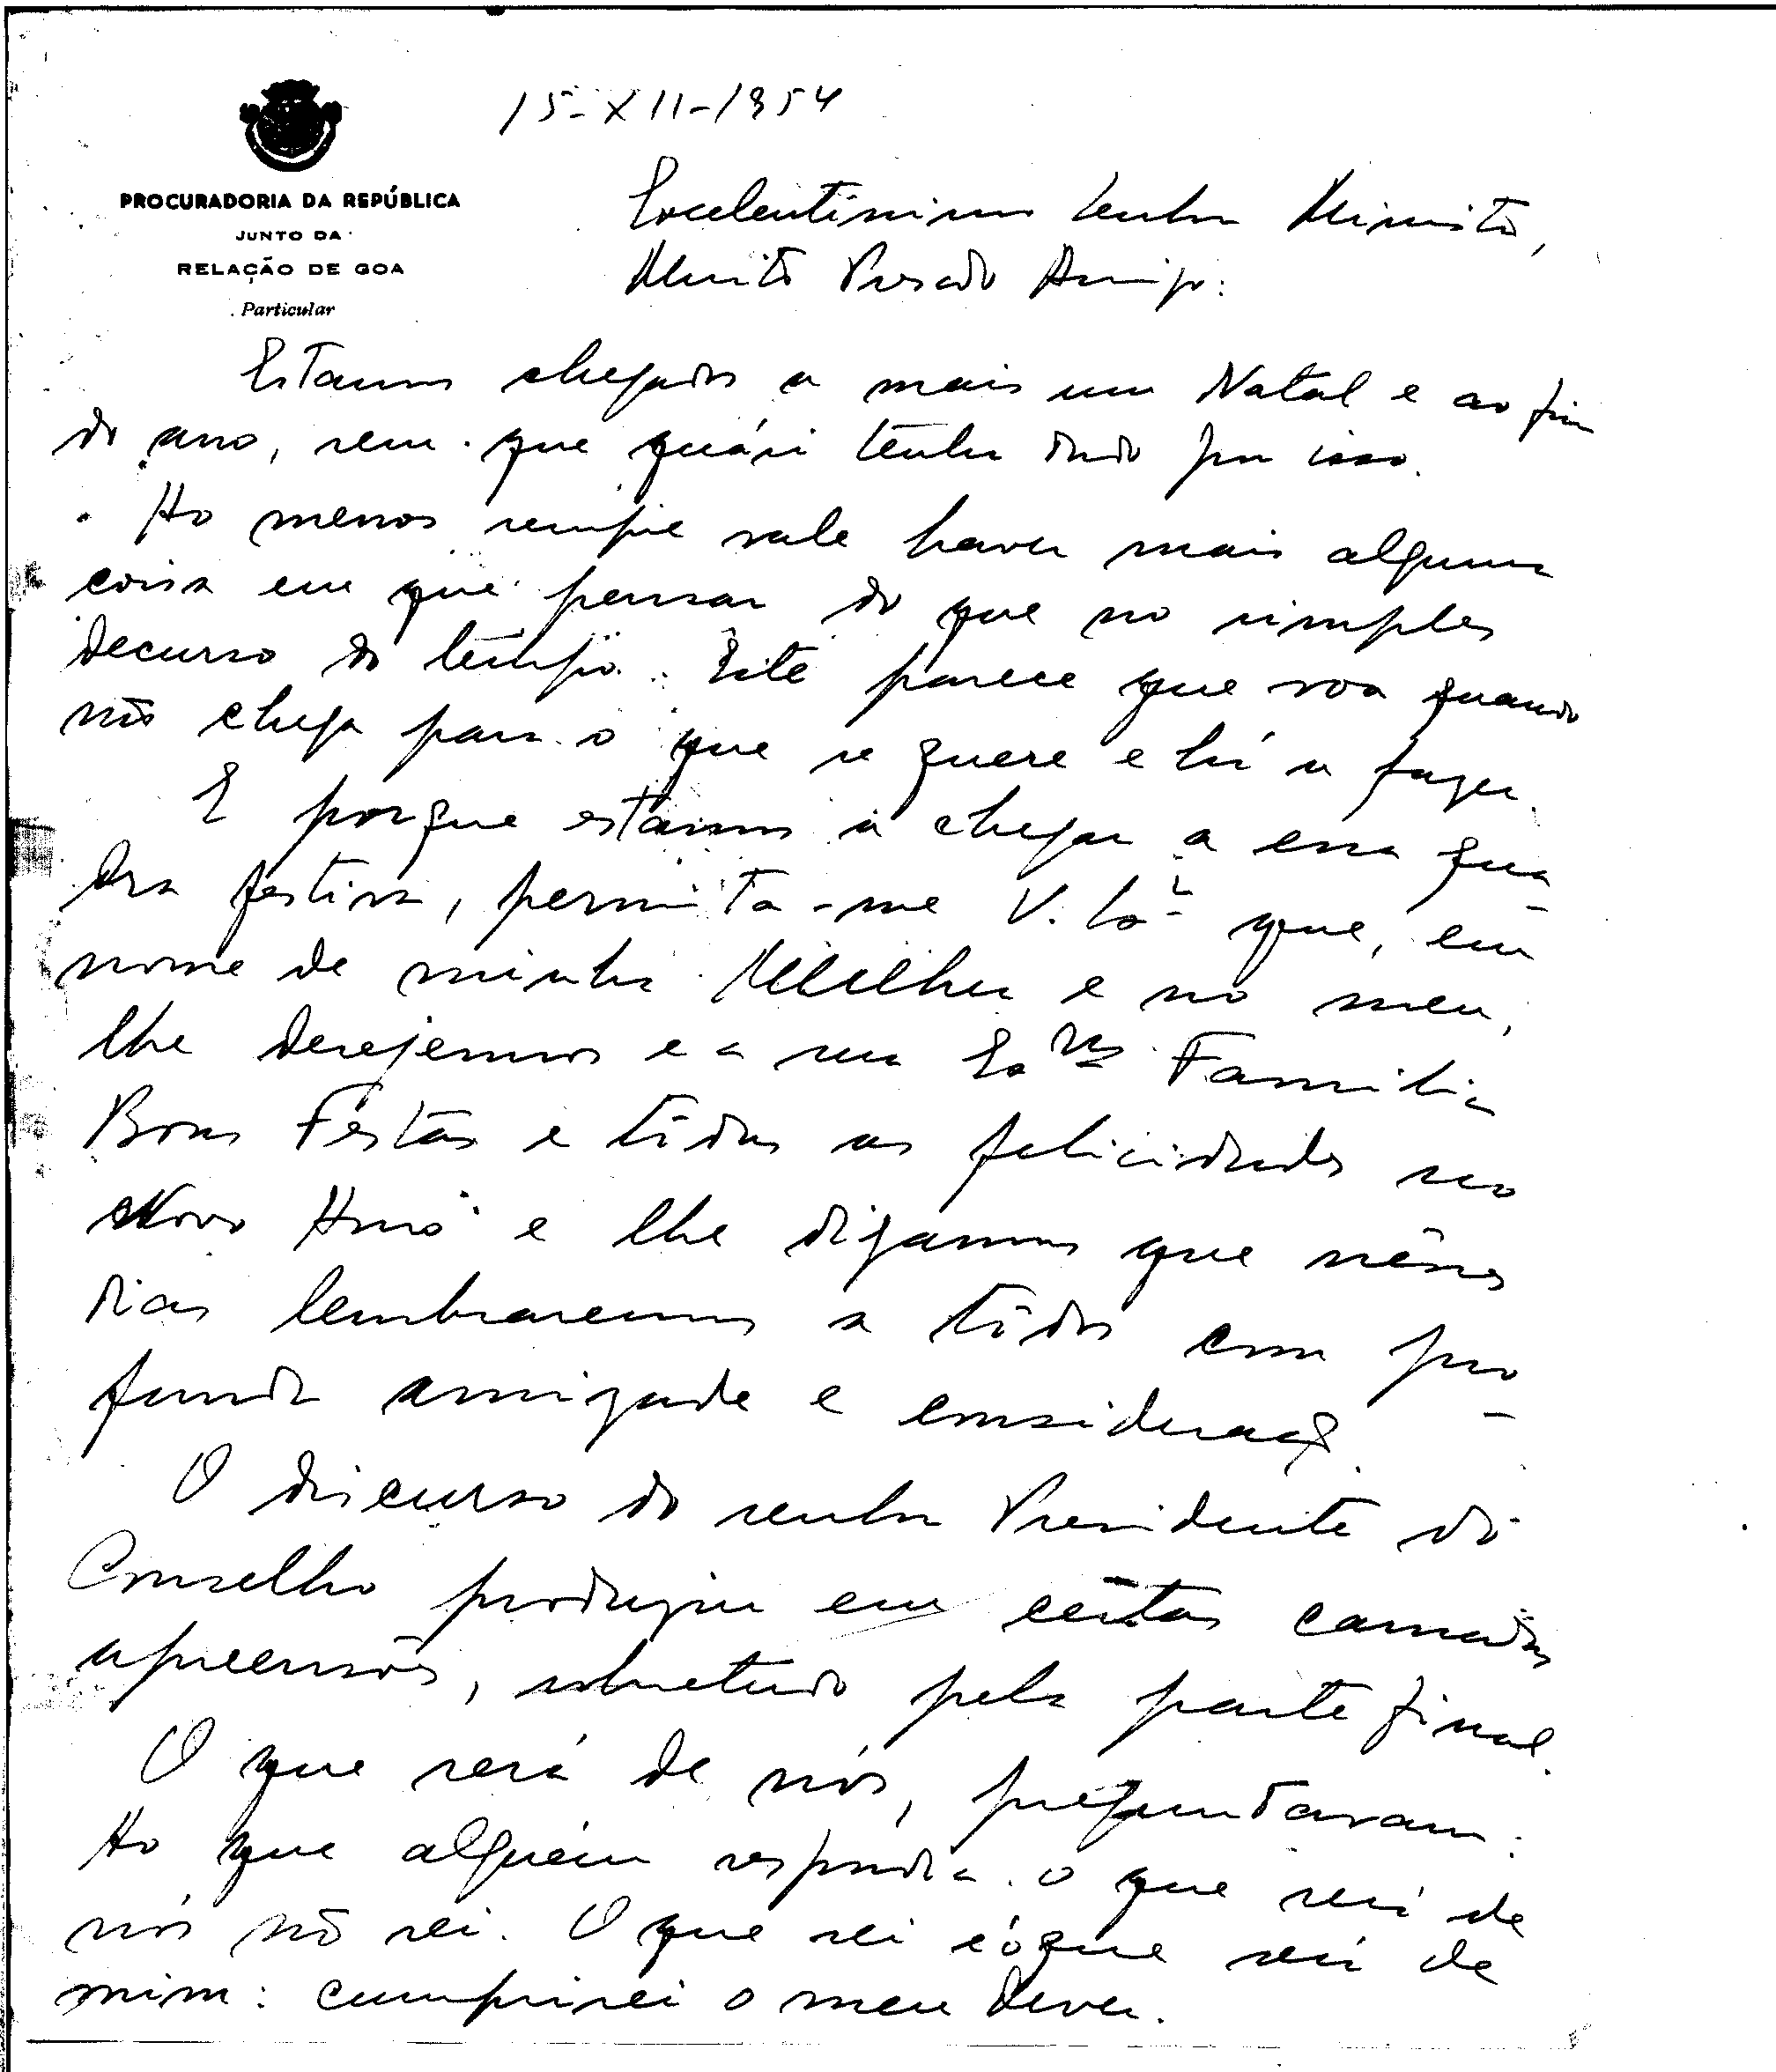 15-XII-1954
PROCURADORIA DA REPÚBLICA
JUNTO DA
RELAÇÃO DE GOA
Particular
Excelentíssimo Senhor Ministro,
Muito Prezado Amigo:
Estamos chegados a mais um Natal e ao fim
do ano, sem que quási tenha dado por isso.
Ao menos sempre vale haver mais alguma
coisa em que pensar do que no simples
decurso do tempo. Este parece que voa quando
não chega para o que se quere e há a fazer.
E porque estamos a chegar a essa qua-
dra festiva, permita-me V. Exª que, em
nome de minha Mulher e no meu,
lhe desejemos e a sua Exma Familia
Boas Festas e tôdas as felicidades no
Novo Ano e lhe digamos que nêsses
dias lembraremos a todos com pro-
funda amizade e consideração.
O discurso do senhor Presidente do
Conselho produziu em certas camadas
apreensões, sobretudo pela parte final.
O que será de nós, preguntavam:
Ao que alguém respondia: o que será de
nós não sei. O que sei é o que será de
mim: cumprirei o meu dever.